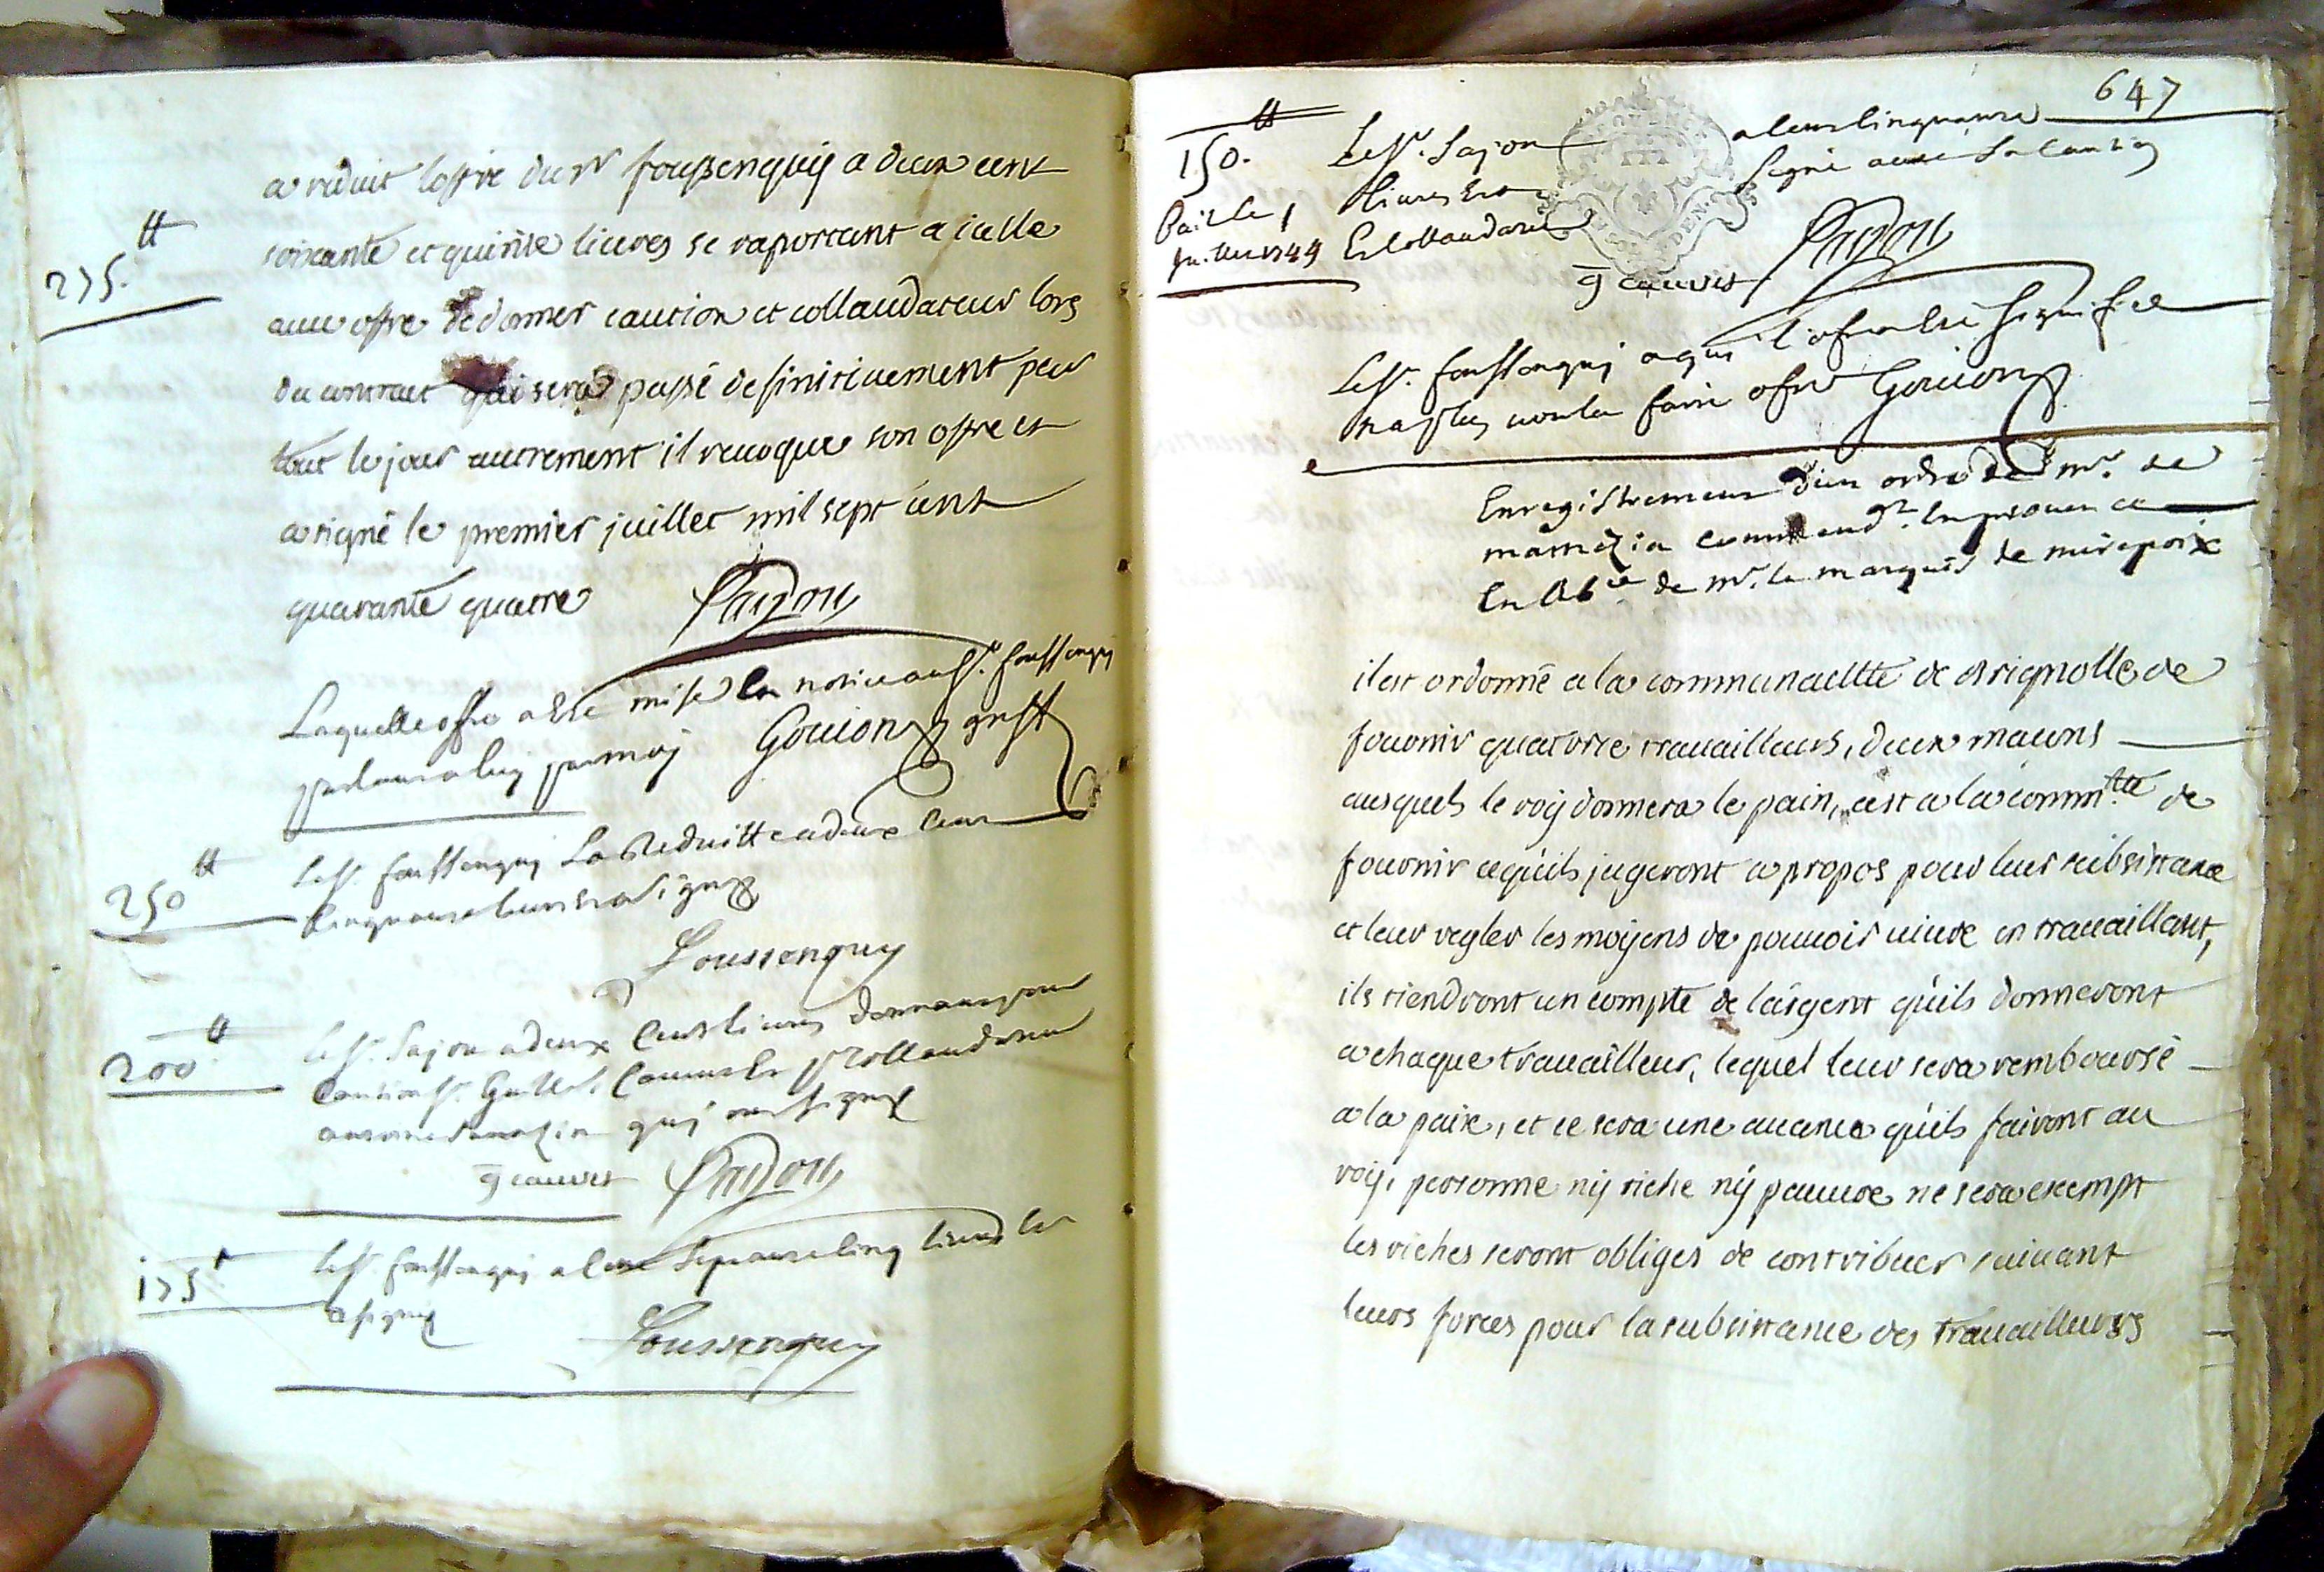 a reduit lofre du sr foussenquy a deux cent
275.tt
soixante et quinse liures se raportant a icelle
auec ofre de donner caution et collaudateur lors
du contract qui sera passé definitiuement peur
tout le jour autrement il reuoque son ofre et
a signé le premier juillet mil sept cent
quarante quatre
Laquelle ofre a esté mise en notice au sr. foussenquy
parlant a luy par moy Gouion greff
250 tt
Le sr. foussenquy La Reduitte a deux Cens
Cinquante liures et a signé
Foussenquy
200 tt
le sr. Sajou a deux Cens liures donnant pour
Caution sr. Guill. Cauues et pr Collaudateur
quy ont signé
g cauves
175 t
le sr. foussenquy a Cent Septante Cinq liures et
a signé
Foussenquy
647
150. tt
Le sr. Sajou
a Cent Cinquante
Liures et a
Signé auec Sa Caution
Bail le 1
Juillet 1744
Et Collaudateur
g cauves
Le sr. foussenquy a quy l'ofre a esté signifiée
na plus voulu faire ofre Gouion
Enregistrement d'un ordre de mr. de
command.t En prouence
En Abce de mr. le marquis de mirepoix
il est ordonné a la communautté de Brignolle de
fournir quatorze trauailleurs, deux maçons
ausquels le roy donnera le pain, cest a la commtté de
fournir ce qu'ils jugeront a propos pour leur subsistance
et leur regler les moyens de pouuoir uiure en trauaillant,
ils tiendront un compte de largent qu'ils donneront
a chaque trauailleur, lequel leur sera remboursé
a la paix, et ce sera une auance qu'ils fairont au
roy, personne ny riche ny pauure ne sera exempt
les riches seront obliges de contribuer suiuant
leurs forces pour la subsistance des trauailleurs